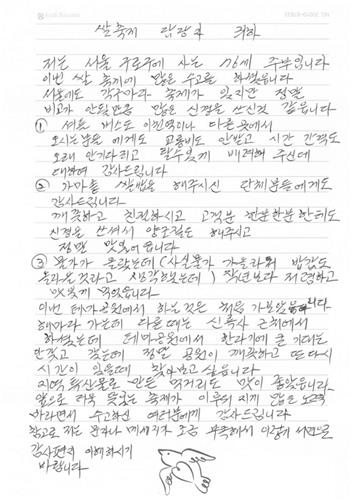 쌀축제 담당자 귀하
저는 서울 구로구에 사는 76세 주부입니다
이번 쌀 축제에 많은 수고를 하셨습니다
서울에도 각구마다 축제가 있지만 정말
비교가 안될만큼 많은 신경을 쓰신것 같읍니다
① 셔틀 버스도 이천역이나 다른곳에서
오시는분들 에게도 교통비도 안받고 시간 간격도
오래 안기다리고 탈수있게 배려해 주신데
대하여 감사드립니다
② 가마솥 쌀밥을 해주시신 단체분들에게도
감사드립니다
깨끗하고 친절하시고 고객분 한분한분한테도
신경을 쓰셔서 해주시고
정말 맛있어읍니다
③ 물가가 올랐는데 (사실물가 가올라 밥값도
올라을것라고 생각했는데) 작년보다 저렴하고
맛있게 먹었읍니다
이번 테마공원에서 하는것은 처음 가보았습니다
해마다 가는데 다른때는 설봉사 근처에서
하셨는데 테마공원에서 한다기에 큰 기대는
안갖고 갔는데 정말 공원이 깨끗하고 또다시
시간이 있을때 찾아가고 싶읍니다
지역 특산물로 만든 먹거리도 맛이 좋았읍니다
앞으로 더욱 뜻있는 축제가 이루어 지기 많은 노력
바라면서 수고하신 여러분에게 감사드립니다
참고로 저는 문자나 메세지가 조금 부족해서 이렇게 서면으로
감사편지 이해하시기
바랍니다